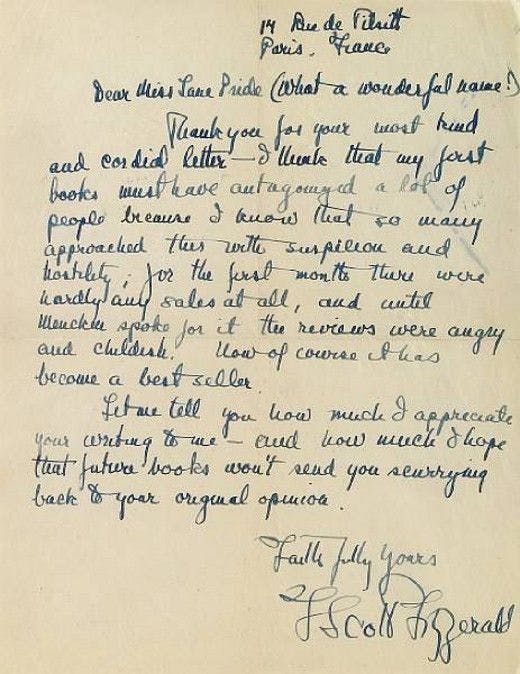 14 Rue de Tilsitt
Paris, France
Dear Miss Jane Pride (What a wonderful name!)
Thank you for your most kind
and cordial letter — I think that my first
books must have antagonized a lot of
people because I know that so many
approached this with suspicion and
hostility; for the first months there were
hardly any sales at all, and until
Mencken spoke for it the reviews were angry
and childish. Now of course it has
become a best seller.
Let me tell you how much I appreciate
your writing to me — and how much I hope
that future books won't send you scurrying
back to your original opinion.
Faithfully Yours
F Scott Fitzgerald